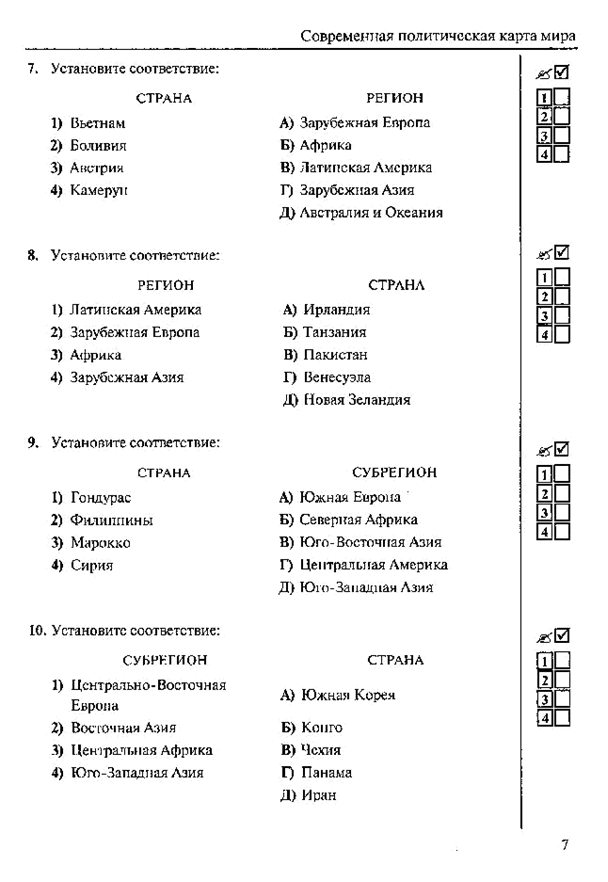 Современная политическая карта мира
7. Установите соответствие:
СТРАНА РЕГИОН
1) Вьетнам А) Зарубежная Европа
2) Боливия Б) Африка
3) Австрия В) Латинская Америка
4) Камерун Г) Зарубежная Азия
Д) Австралия и Океания
1
2
3
4
8. Установите соответствие:
РЕГИОН СТРАНА
1) Латинская Америка А) Ирландия
2) Зарубежная Европа Б) Танзания
3) Африка В) Пакистан
4) Зарубежная Азия Г) Венесуэла
Д) Новая Зеландия
1
2
3
4
9. Установите соответствие:
СТРАНА СУБРЕГИОН
1) Гондурас А) Южная Европа
2) Филиппины Б) Северная Африка
3) Марокко В) Юго-Восточная Азия
4) Сирия Г) Центральная Америка
Д) Юго-Западная Азия
1
2
3
4
10. Установите соответствие:
СУБРЕГИОН СТРАНА
1) Центрально-Восточная
Европа А) Южная Корея
2) Восточная Азия Б) Конго
3) Центральная Африка В) Чехия
4) Юго-Западная Азия Г) Панама
Д) Иран
1
2
3
4
7